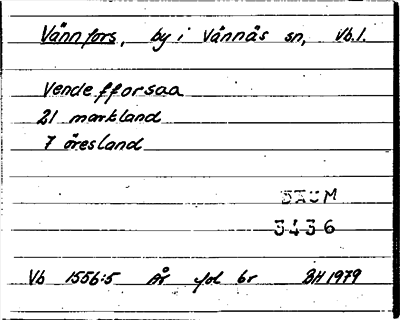 Vännfors, by i Vännäs sn, Vb.l.
Vendefforsaa
21 markland
7 öresland
DAUM
3436
Vb 1556:5 År fol 6r BH 1979